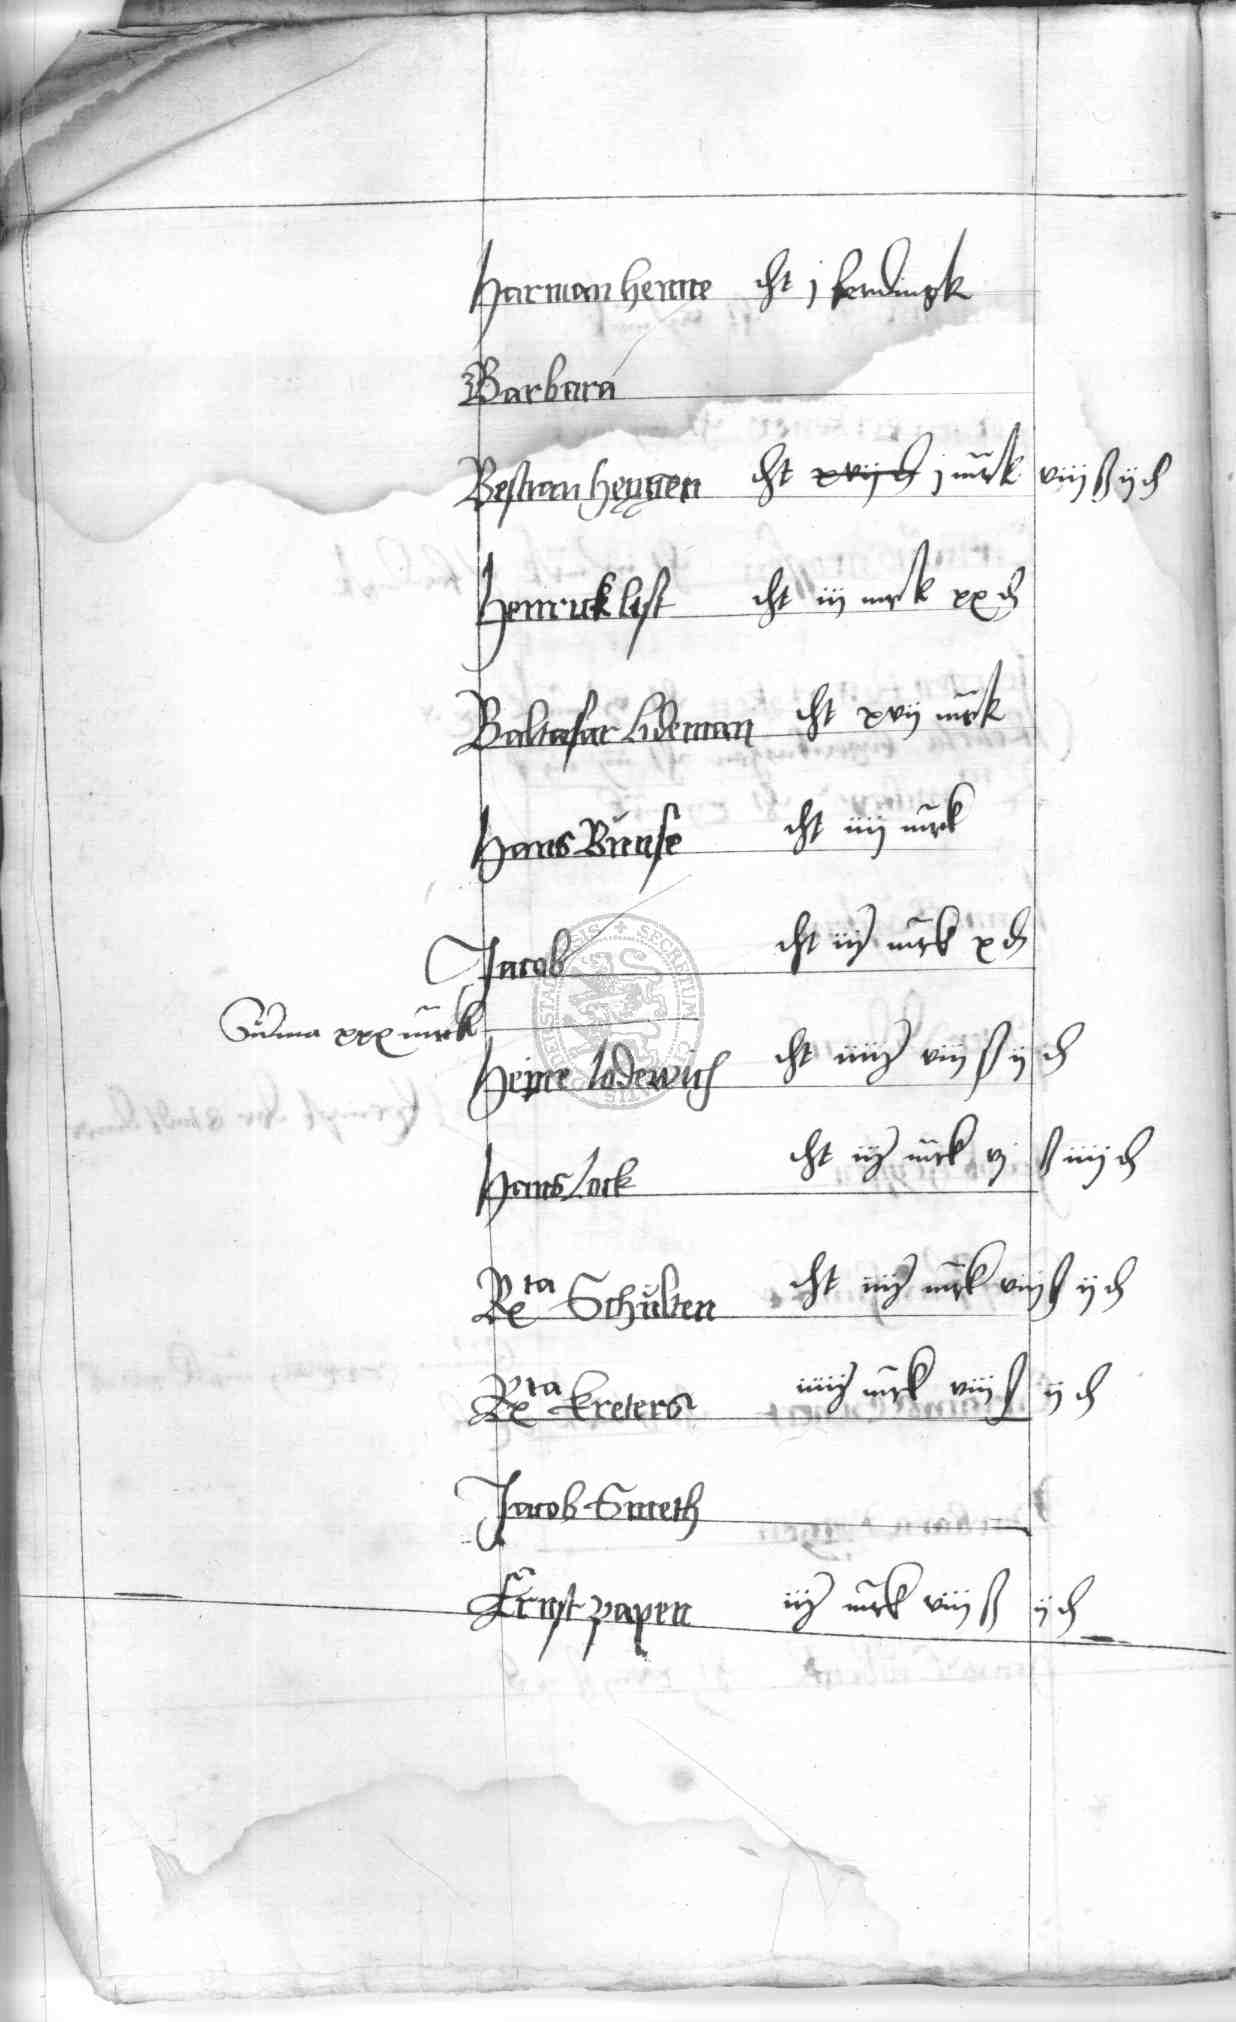 Harman Henne dt j ferdingk
Barbara
Bestian Heynen dt xvij ß j mrk viij ß ij d
Henrick list dt iij mrk xx d
Baltasar lideman dt xvij mrk
Hans Bunse dt iiij mrk
Jacob dt iij mrk x d
Suma xxx mrk
Heine lodewich dt iiij viij ß ij d
Hans Lock dt iij mrk vj ß iiij d
Rta Schulten dt iiij mrk viij ß ij d
Rta Kreters iiij mrk viij ß ij d
Jacob Smeth
Ernst papen iij mrk viij ß ij d
SECRETUM